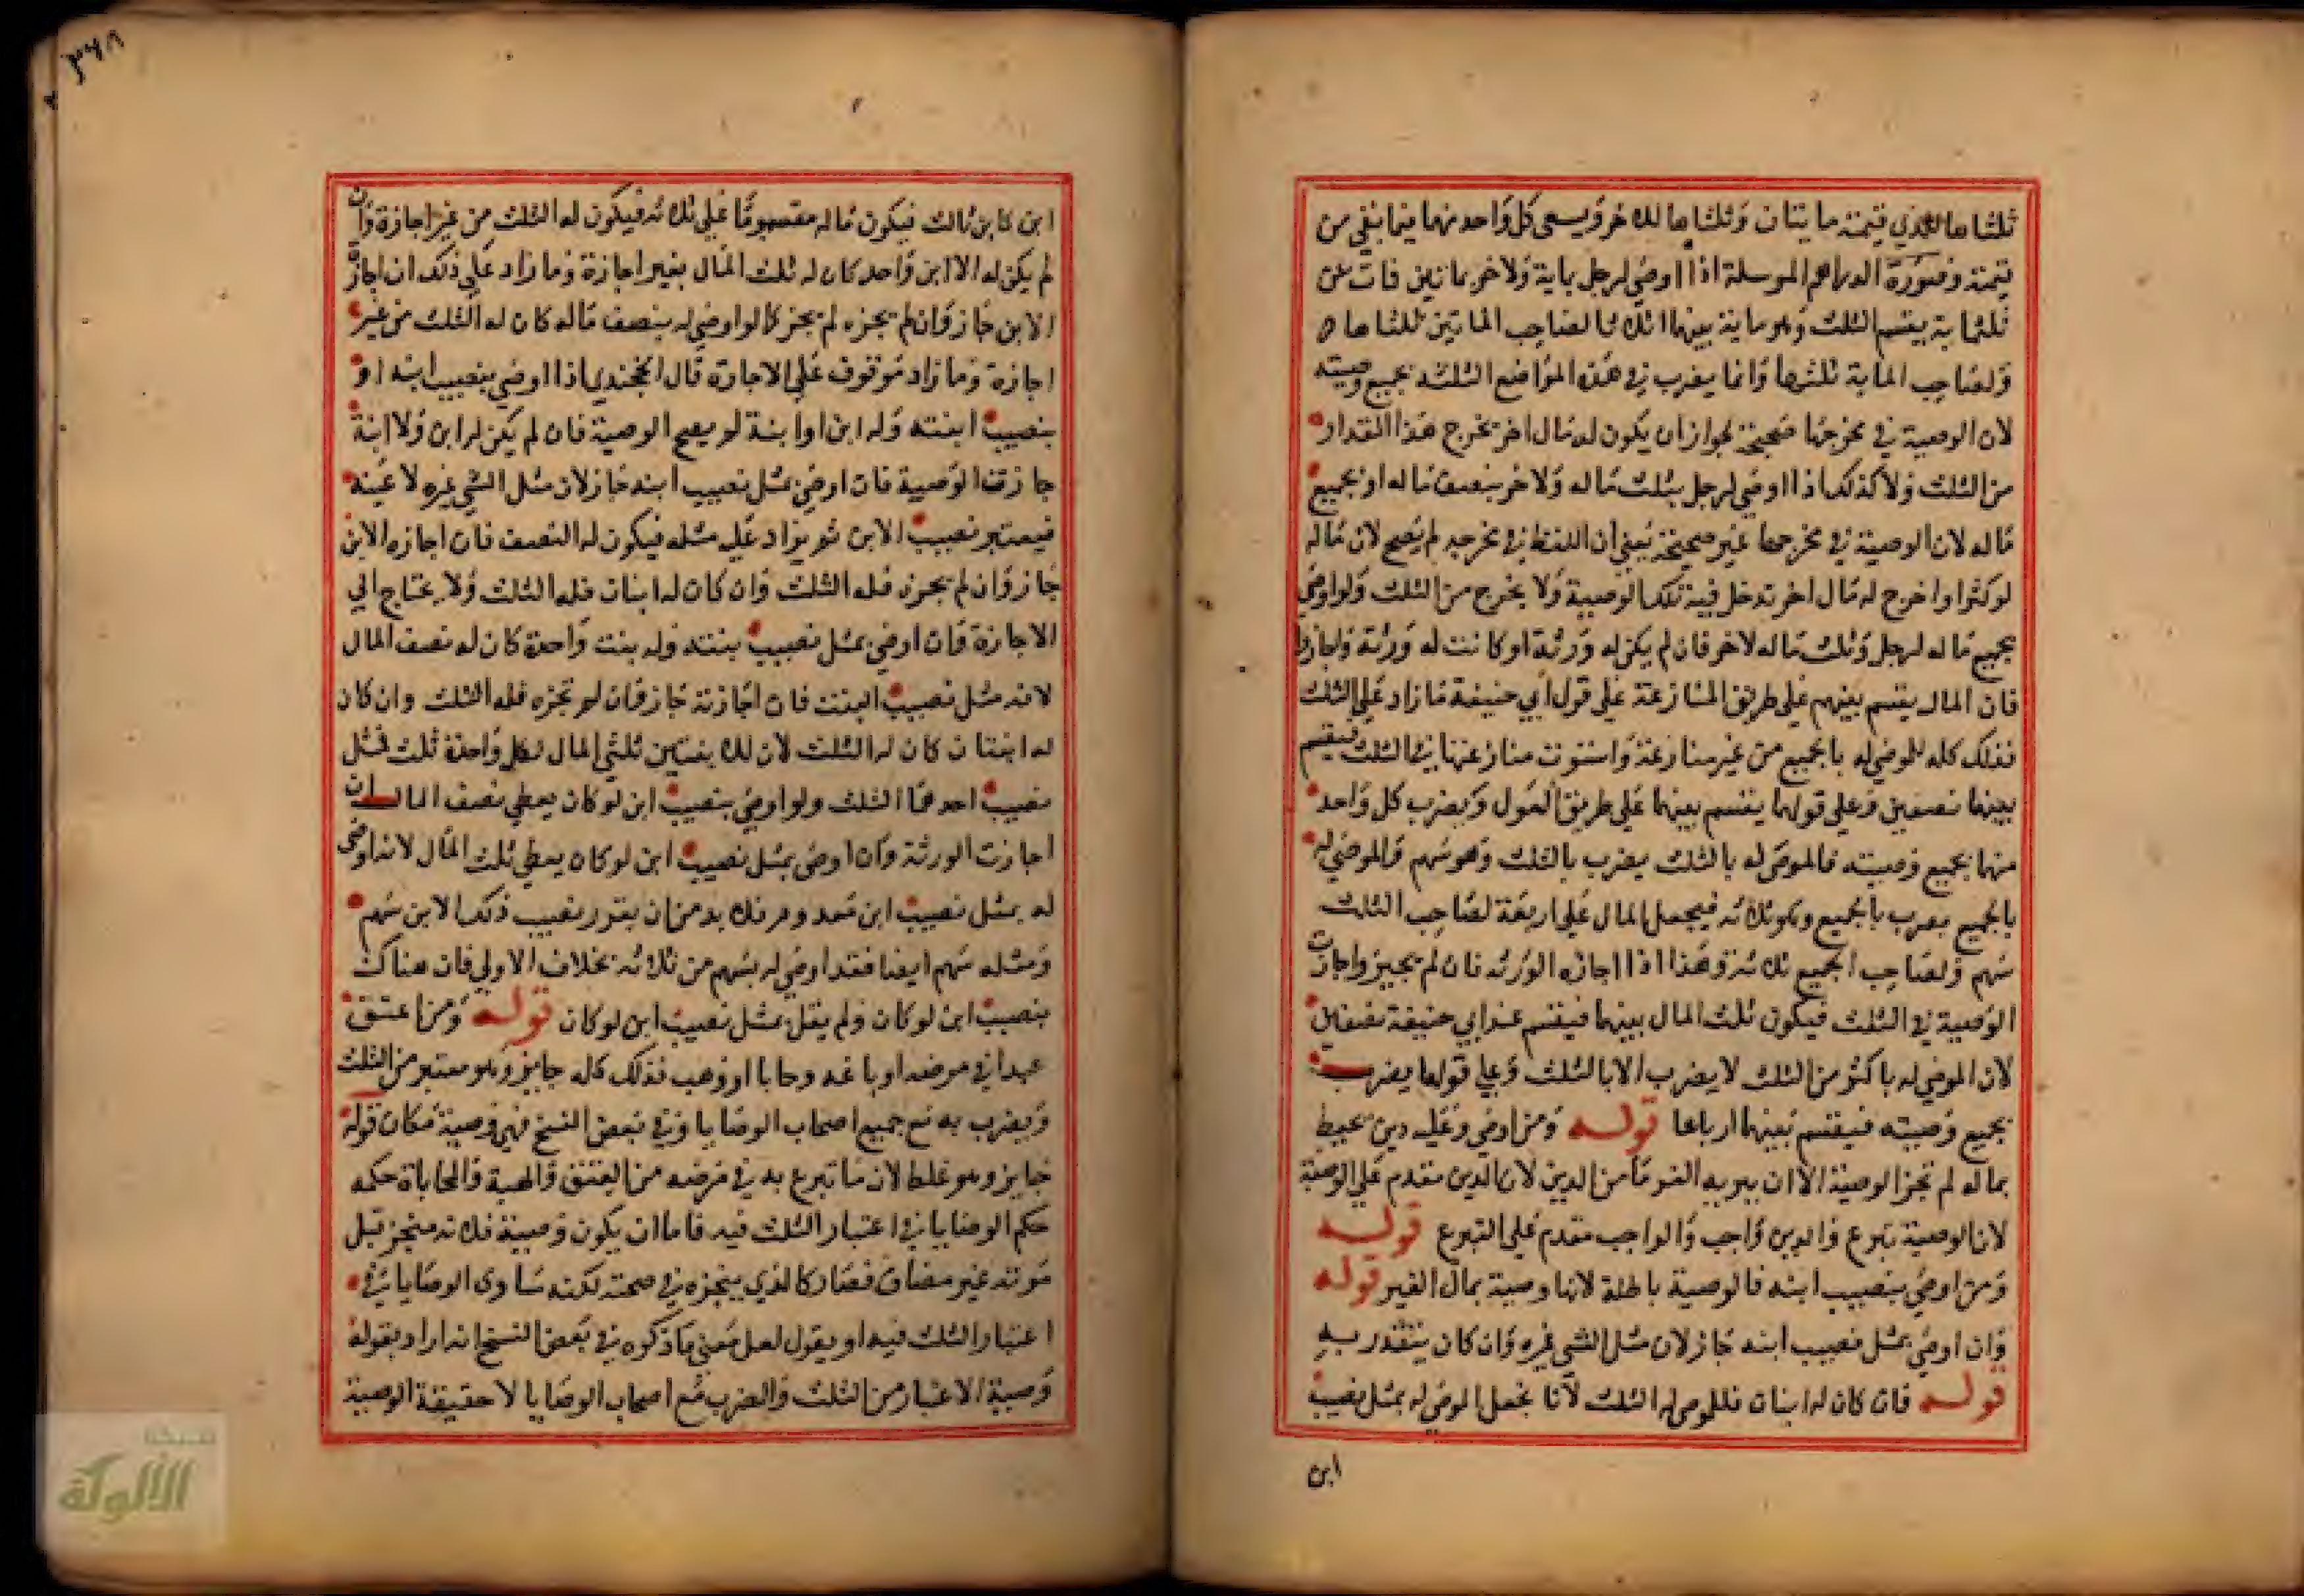 ثلثاها للذي قيمته مايتان وثلثاها للاخر ويسعى كل واحد منهما فيما بقي من
قيمته وصورة الدراهم المرسلة اذا اوصى لرجل بماية ولاخر بمائتين فات عن
ثلثماية يقسم الثلث وهو ماية بينهما اثلاثا لصاحب المايتين ثلثاها
ولصاحب الماية ثلثها وانما يضرب في هذه المواضع الثلثه بجميع وصيته
لان الوصية في مخرجها صحيحة لجواز ان يكون له مال اخر يخرج هذا القدار
من الثلث ولا كذلك اذا اوصى لرجل بثلث ماله ولاخر بنصف ماله او بجميع
ماله لان الوصية في مخرجها غير صحيحة يعني ان اللفظ في مخرجه لم يصح لان ماله
لو كثر او اخرج له مال اخر تدخل فيه تلك الوصية ولا يخرج من الثلث ولو اوصى
بجميع ماله لرجل وثلث ماله لاخر فان لم يكن له ورثة او كانت له ورثة واجازوا
فان المال يقسم بينهم على طريق المنازعة على قول ابي حنيفة ما زاد على الثلث
فذلك كله للموصى له بالجميع من غير منازعة واستوت منازعتهما في الثلث فيقسم
بينهما نصفين وعلى قولهما يقسم بينهما على طريق العول ويضرب كل واحد
منهما بجميع وصيته فالموصى له بالثلث يضرب بالثلث وهو سهم والموصى له
بالجميع يضرب بالجميع وهو ثلاثه فيجعل المال على اربعة لصاحب الثلث
سهم ولصاحب الجميع ثلاثة وهذا اذا اجازه الورثه فان لم يجيزوا جازت
الوصية في الثلث فيكون ثلث المال بينهما فيقسم عند ابي حنيفة نصفين
لان الموصى له باكثر من الثلث لا يضرب الا بالثلث وعلى قولهما يضرب
بجميع وصيته فيقسم بينهما ارباعا قوله ومن اوصى وعليه دين محيط
بماله لم تجز الوصية الا ان يبريه الغرما من الدين لان الدين مقدم على الوصية
لان الوصية تبرع والدين واجب والواجب مقدم على التبرع قوله
ومن اوصى بنصيب ابنه فالوصية باطلة لانها وصية بمال الغير قوله
وان اوصى بمثل نصيب ابنه جاز لان مثل الشي غيره وان كان يتقدر به
قوله فان كان له ابنان فللموصى له الثلث لانا نجعل الموصى له بمثل نصيب
ابن
ابن كابن ثالث فيكون ماله مقسوما على ثلاثه فيكون له الثلث من غير اجازة وان
لم يكن له الا ابن واحد كان له ثلث المال بغير اجازة وما زاد على ذلك ان اجازه
الابن جاز وان لم يجزه لم يجز كما لو اوصى له بنصف ماله كان له الثلث من غير
اجازة وما زاد موقوف على الاجازة قال الخجندي اذا اوصى بنصيب ابنه او
بنصيب ابنته وله ابن او ابنة لم يصح الوصية فان لم يكن له ابن ولا ابنة
جازت الوصية فان اوصى بمثل نصيب ابنه جاز لان مثل الشي غيره لا عينه
فيعتبر نصيب الابن ثم يزاد عليه مثله فيكون له النصف فان اجازه الابن
جاز وان لم يجزه فله الثلث وان كان له ابنان فله الثلث ولا يحتاج الى
الاجازة فان اوصى بمثل نصيب بنته وله بنت واحدة كان له نصف المال
لانه مثل نصيب البنت فان اجازته جاز فان لم تجزه فله الثلث وان كان
له ابنتان كان له الثلث لان للابنتين ثلثي المال لكل واحدة ثلث فمثل
نصيب احدهما الثلث ولو اوصى بنصيب ابن لو كان يعطى نصف المال ان
اجازت الورثة وان اوصى بمثل نصيب ابن لو كان يعطى ثلث المال لانه اوصى
له بمثل نصيب ابن معدوم فلا بد من ان يقدر نصيب ذلك الابن سهم
ومثله سهم ايضا فقد اوصى له بسهم من ثلاثه بخلاف الاولى فان هناك
بنصيب ابن لو كان ولم يقل بمثل نصيب ابن لو كان قوله ومن اعتق
عبدا في مرضه او باعه وحابا او وهب فذلك كله جايز وهو معتبر من الثلث
ويضرب به مع جميع اصحاب الوصايا وفي بعض النسخ فهو وصية مكان قوله
جايز وهو غلط لان ما تبرع به في مرضه من العتق والهبة والمحاباة حكمه
حكم الوصايا في اعتبار الثلث فيه فاما ان يكون وصية فلا نه منجز قبل
موته غير مضاف فصار كالذي ينجزه في صحته لكنه ساوى الوصايا في
اعتبار الثلث فيه او يقول لعل معنى ما ذكره في بعض النسخ انه اراد بقوله
وصية الاعتبار من الثلث والضرب مع اصحاب الوصايا لا حقيقة الوصية
شبكة
الألوكة